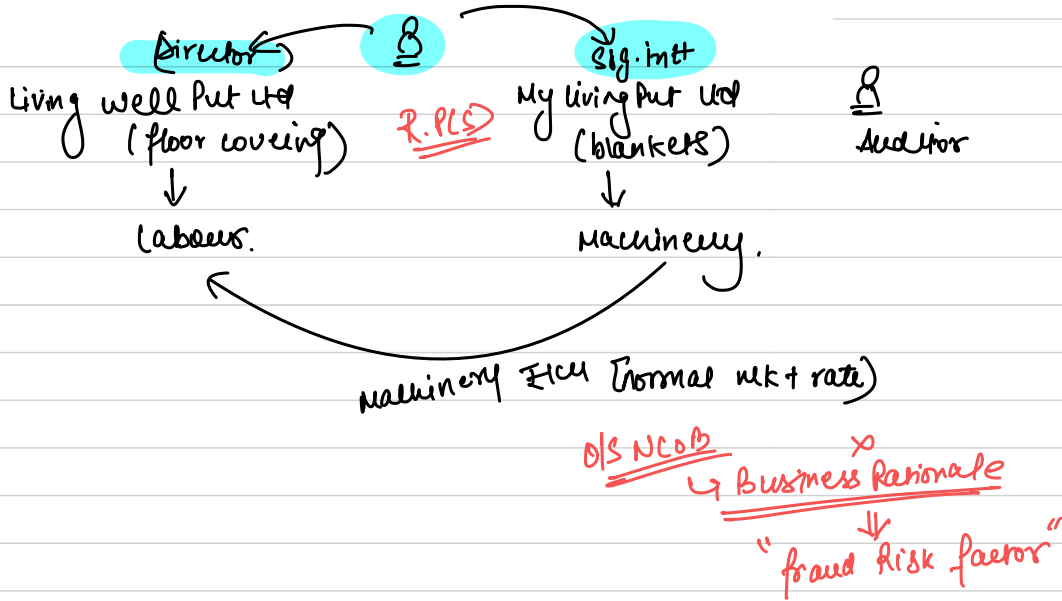 Director
Sig. intt
Living Well Pvt Ltd
(floor covering)
R.P(S)
My Living Pvt Ltd
(blankets)
Auditor
Labour.
Machinery.
Machinery [normal mkt rate]
O/S NCOB
x
↳ Business Rationale
⇓
"fraud Risk factor"